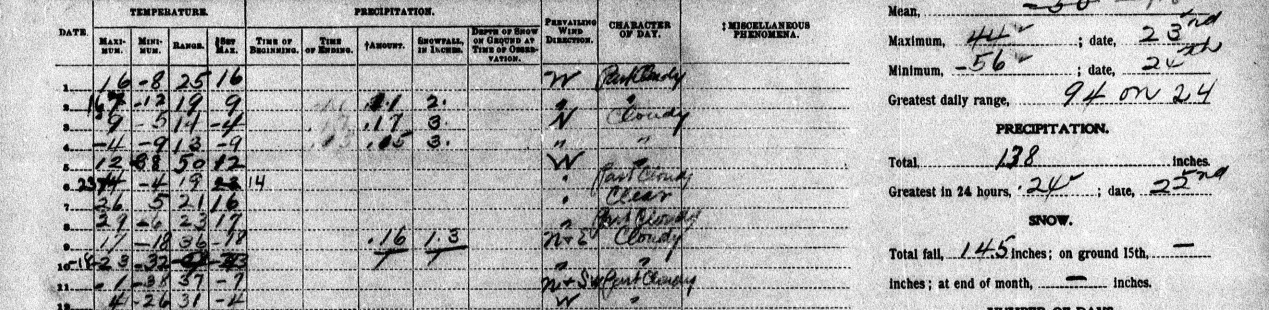 TEMPERATURE. PRECIPITATION.
DATE. MAXI-MUM. MINI-MUM. RANGE. ‡SET MAX. TIME OF BEGINNING. TIME OF ENDING. †AMOUNT. SNOWFALL, IN INCHES. DEPTH OF SNOW ON GROUND AT TIME OF OBSER-VATION. PREVAILING WIND DIRECTION. CHARACTER OF DAY. ‡MISCELLANEOUS PHENOMENA.
1 16 -8 25 16 W Part Cloudy
2 -12 19 9 .11 2. " "
3 9 -5 14 -4 .17 3. N Cloudy
4 -4 -9 13 -9 3. " "
5 12 -38 50 12 W "
6 -4 19 14 " Part Cloudy
7 26 5 21 16 " Clear
8 29 -6 23 17 " Part Cloudy
9 17 -18 36 -18 .16 1.3 N+E Cloudy
10 -23 -32 " "
11 -1 -38 37 -7 N+SW Part Cloudy
12 4 -26 31 -4 W "
Mean,
Maximum, 44 ; date, 23rd
Minimum, -56 ; date, 24th
Greatest daily range, 94 on 24
PRECIPITATION.
Total, 138 inches.
Greatest in 24 hours, .24 ; date, 22nd
SNOW.
Total fall, 14.5 inches; on ground 15th, —
inches; at end of month, — inches.